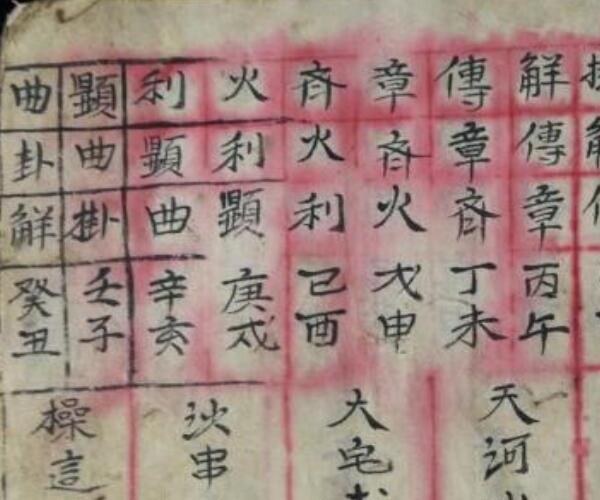 觧傳章丙午
傳章斉丁未
章斉火戊申
斉火利己酉
火利顕庚戌
利顕曲辛亥
顕曲掛壬子
曲卦觧癸丑
天河
大宅
沙串
橾這